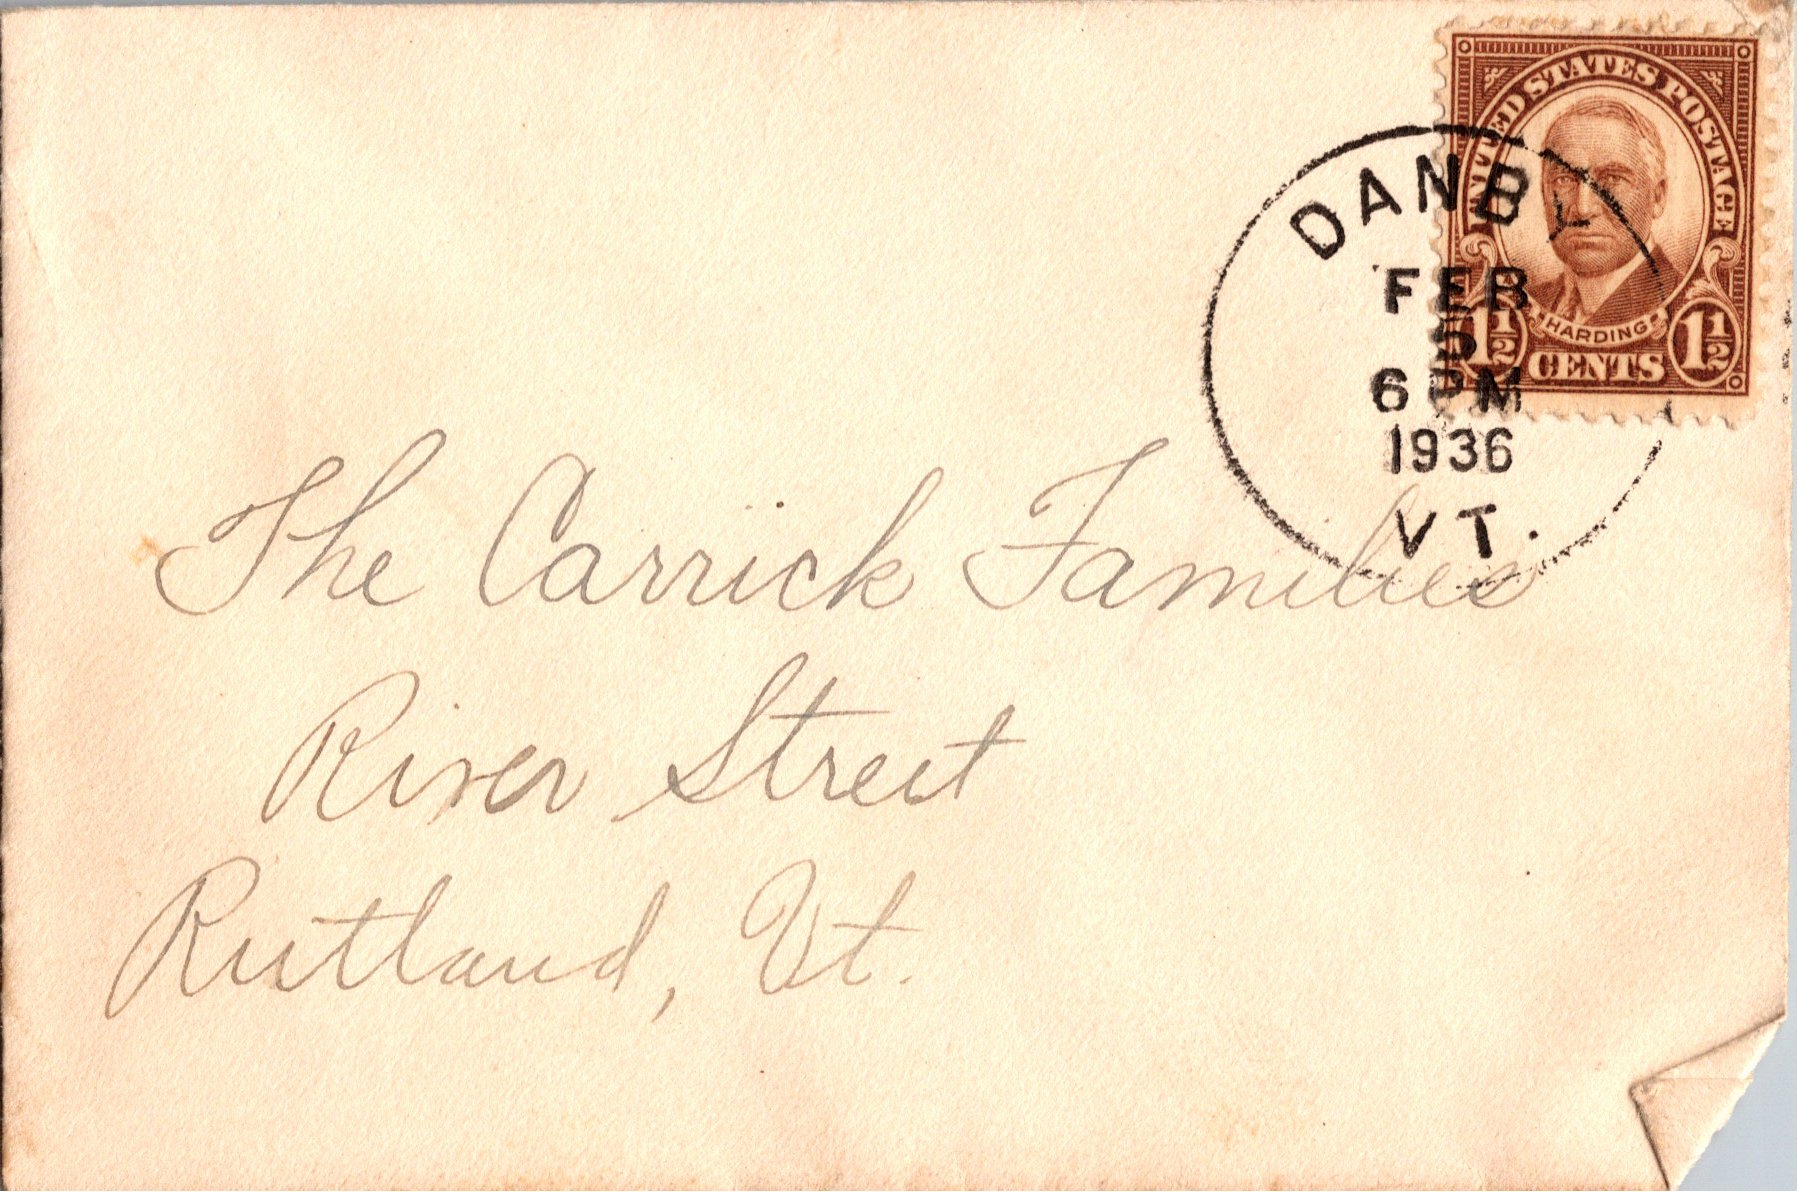 UNITED STATES POSTAGE
HARDING
1½ CENTS 1½
DANBY
FEB
5
6 PM
1936
VT.
The Carrick Families
River Street
Rutland, Vt.